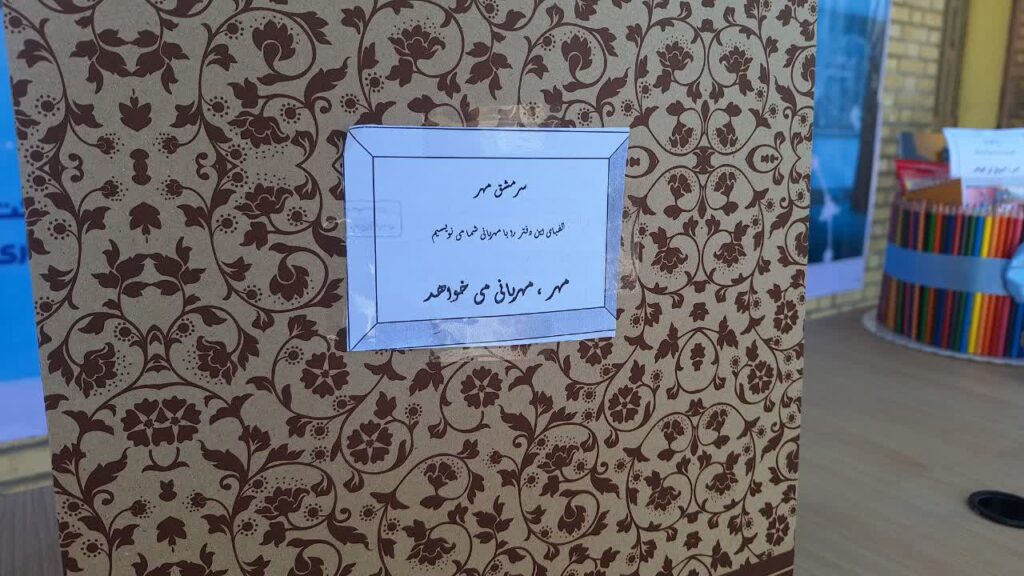 سرمشق مهر
الفبای این دفتر را با مهربانی شما می نویسیم
مهر ، مهربانی می خواهد